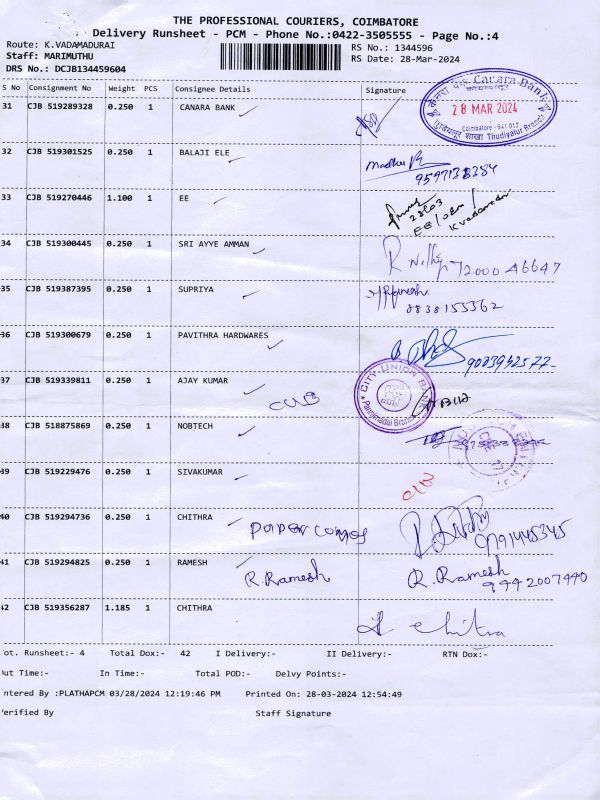 THE PROFESSIONAL COURIERS, COIMBATORE
Delivery Runsheet - PCM - Phone No.:0422-3505555 - Page No.:4
Route: K.VADAMADURAI RS No.: 1344596
Staff: MARIMUTHU RS Date: 28-Mar-2024
DRS No.: DCJB134459604
S No Consignment No Weight PCS Consignee Details Signature
31 CJB 519289328 0.250 1 CANARA BANK
Canara Bank
28 MAR 2024
Coimbatore - 641 017
Thudiyalur Branch
32 CJB 519301525 0.250 1 BALAJI ELE
33 CJB 519270446 1.100 1 EE
34 CJB 519300445 0.250 1 SRI AYYE AMMAN
72000 46647
35 CJB 519387395 0.250 1 SUPRIYA
8838153362
36 CJB 519300679 0.250 1 PAVITHRA HARDWARES
37 CJB 519339811 0.250 1 AJAY KUMAR
CUB
CITY UNION BANK
38 CJB 518875869 0.250 1 NOBTECH
39 CJB 519229476 0.250 1 SIVAKUMAR
CUB
40 CJB 519294736 0.250 1 CHITHRA
41 CJB 519294825 0.250 1 RAMESH
R. Ramesh R. Ramesh
9992007490
42 CJB 519356287 1.185 1 CHITHRA
chitra
ot. Runsheet:- 4 Total Dox:- 42 I Delivery:- II Delivery:- RTN Dox:-
ut Time:- In Time:- Total POD:- Delvy Points:-
ntered By :PLATHAPCM 03/28/2024 12:19:46 PM Printed On: 28-03-2024 12:54:49
erified By Staff Signature